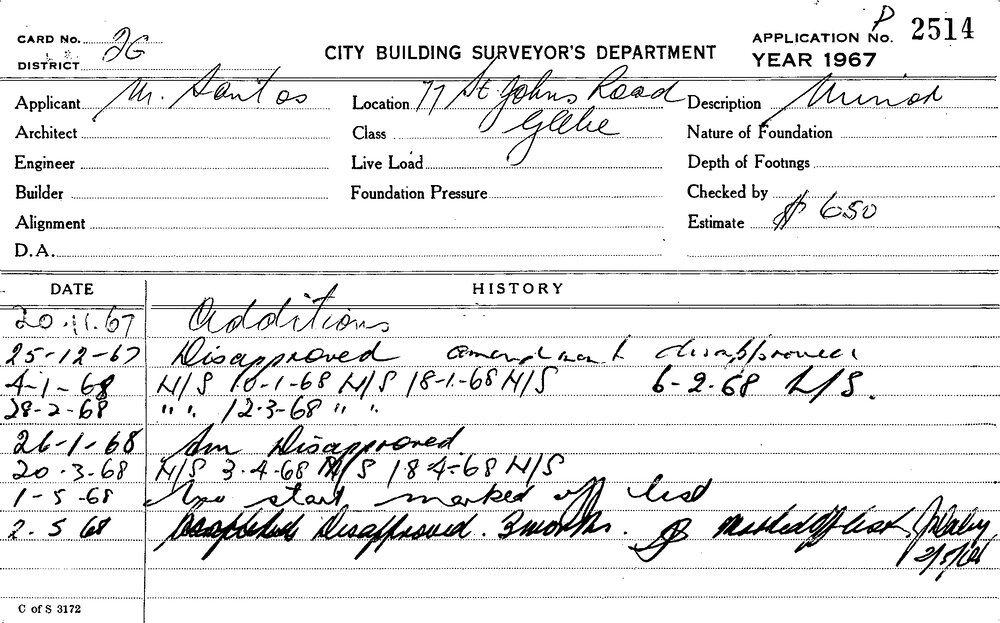 P
CARD NO. 26 APPLICATION NO. 2514
DISTRICT CITY BUILDING SURVEYOR'S DEPARTMENT YEAR 1967
Applicant M. Santos Location 77 St Johns Road Description Minor
Architect Class Glebe Nature of Foundation
Engineer Live Load Depth of Footings
Builder Foundation Pressure Checked by
Alignment Estimate $ 650
D.A.
DATE HISTORY
20.11.67 Additions
25-12-67 Disapproved amendment disapproved
4-1-68 N/S 10-1-68 N/S 18-1-68 N/S 6-2-68 N/S.
28-2-68 " ". 12.3-68 " "
26-1-68 Am Disapproved.
20.3-68 N/S 3.4-68 N/S 18-4-68 N/S
1-5-68 No start marked off list
2.5 68 Disapproved. 3 months. Marked off list
2/5/68
C of S 3172